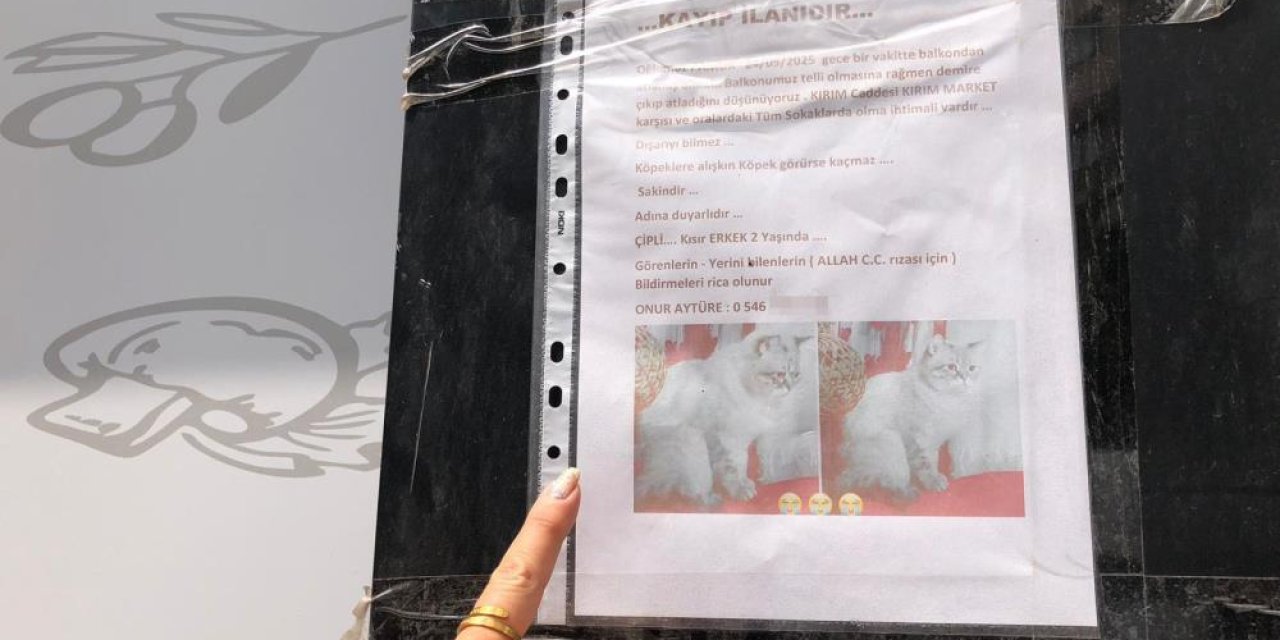 ...KAYIP İLANIDIR...
24/09/2025 gece bir vakitte balkondan
Balkonumuz telli olmasına rağmen demire
çıkıp atladığını düşünüyoruz . KIRIM Caddesi KIRIM MARKET
karşısı ve oralardaki Tüm Sokaklarda olma ihtimali vardır ...
Dışarıyı bilmez ...
Köpeklere alışkın Köpek görürse kaçmaz ....
Sakindir ...
Adına duyarlıdır ...
ÇİPLİ.... Kısır ERKEK 2 Yaşında ....
Görenlerin - Yerini bilenlerin ( ALLAH C.C. rızası için )
Bildirmeleri rica olunur
ONUR AYTÜRE : 0 546